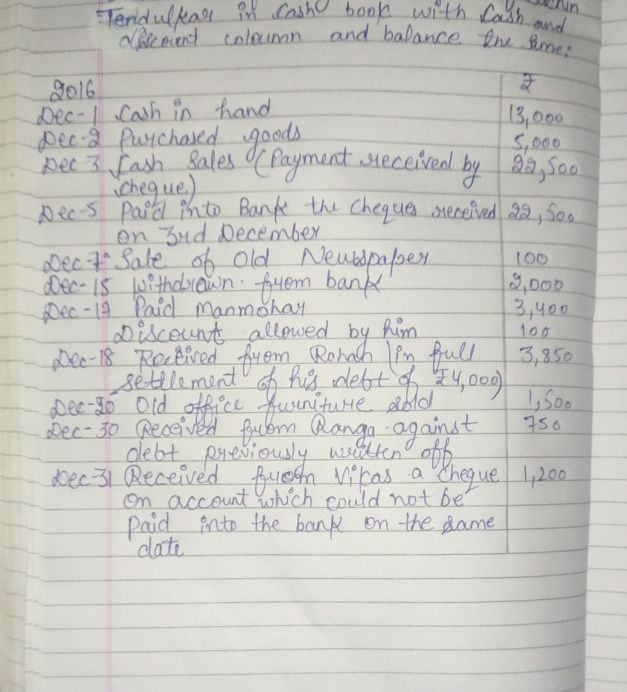 Tendulkar in Cash book with Cash and
discount coloumn and balance the same:
2016 ₹
Dec-1 Cash in hand 13,000
Dec-2 Purchased goods 5,000
Dec 3 Cash Sales (Payment received by 22,500
cheque)
Dec-5 Paid into Bank the Cheques received 22,500
on 3rd December
Dec 7 Sale of Old Newspaper 100
Dec-15 Withdrawn from bank 2,000
Dec-17 Paid Manmohar 3,400
Discount allowed by him 100
Dec-18 Received from Rohan (in full 3,850
settlement of his debt of ₹4,000)
Dec-20 Old office furniture sold 1,500
Dec-30 Received from Ranga against 750
debt previously written off
Dec-31 Received from Vikas a cheque 1,200
on account which could not be
paid into the bank on the same
date